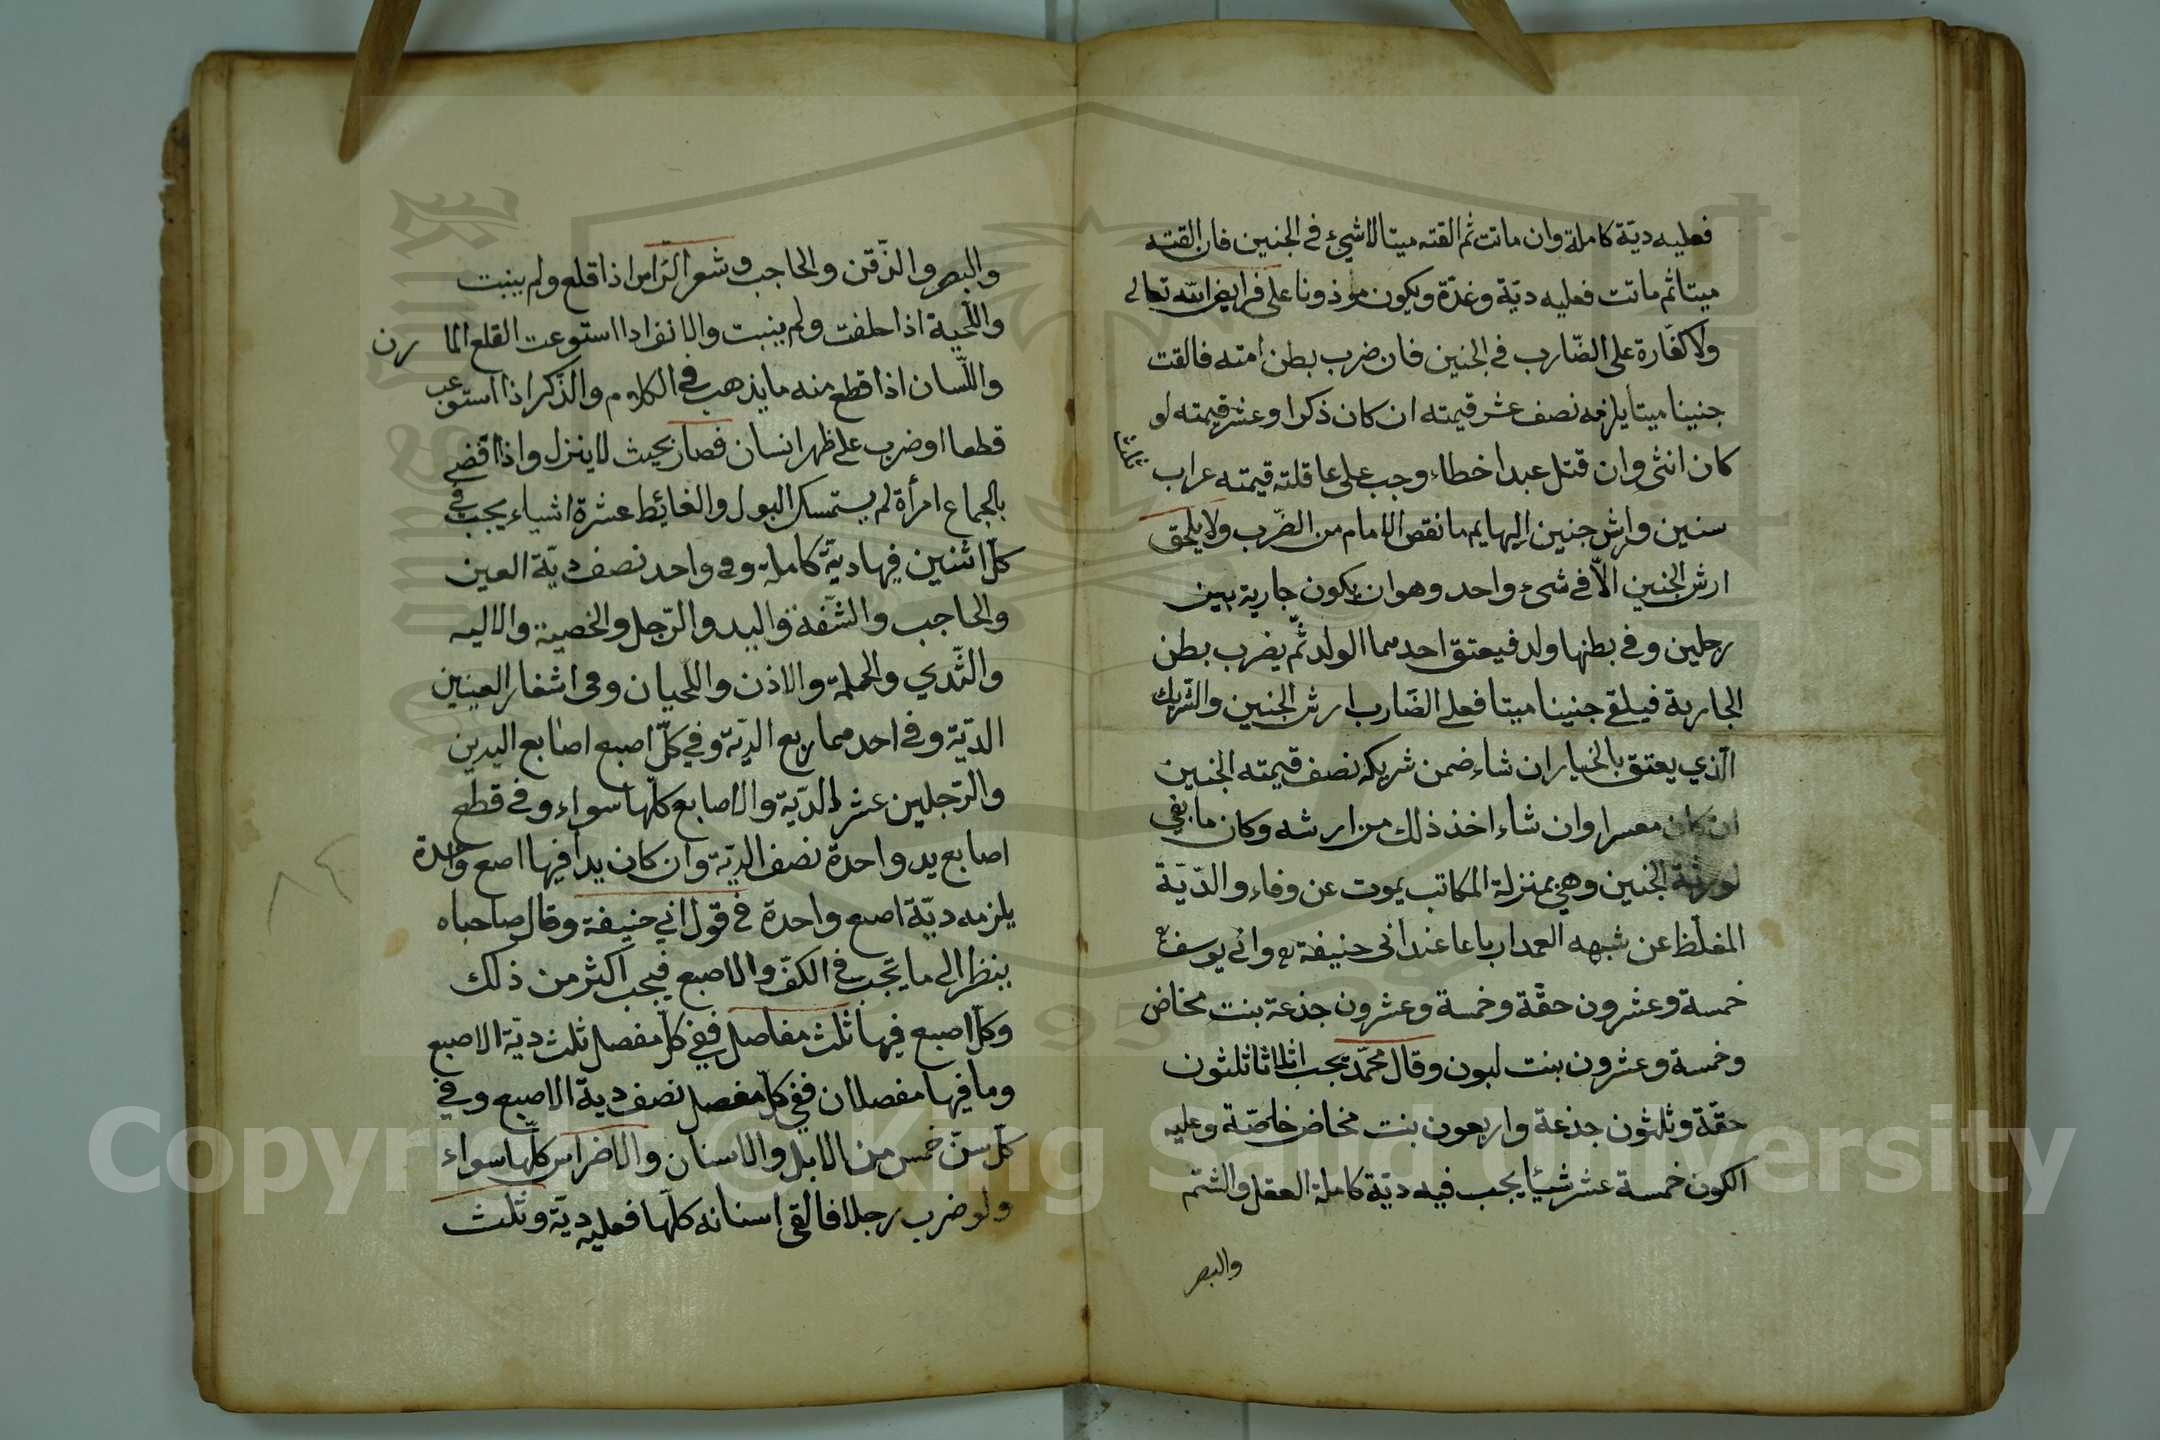 فعليه ديّة كاملة وان ماتت ثم القته ميتا لا شيء في الجنين فان القته
ميتا ثم ماتت فعليه ديّة وغدّة ويكون موذونا على فرايض الله تعالى
ولا كفّارة على الضّارب في الجنين فان ضرب بطن امته فالقت
جنينا ميتا يلزمه نصف عشر قيمته ان كان ذكرا وعشر قيمته لو
كان انثى وان قتل عبدا خطاء وجب على عاقلته قيمته
ثلث
سنين وارش جنين البهايم ما نقص الامام من الضّرب ولا يلحق
ارش الجنين الّا في شيء واحد وهو ان يكون جارية بين
رجلين وفي بطنها ولد فيعتق احدهما الولد ثمّ يضرب بطن
الجارية فيلقي جنينا ميتا فعلى الضّارب ارش الجنين والشريك
الّذي يعتق بالخيار ان شاء ضمن شريكه نصف قيمته الجنين
ان كان معسرا وان شاء اخذ ذلك من ارشه وكان ما بقي
لورثة الجنين وهي بمنزلة المكاتب يموت عن وفاء والدّيّة
المغلّظ عن شبهه العمد ارباعا عند ابي حنيفة وابي يوسف
خمسة وعشرون حقّة وخمسة وعشرون جذعة بنت مخاض
وخمسة وعشرون بنت لبون وقال محمّد يجب اثلاثا ثلثون
حقّة وثلثون جذعة واربعون بنت مخاض خاصّة وعليه
الكون خمسة عشر شيئا يجب فيه ديّة كاملة العقل والشتم
والبصر
والبصر والذّقن والحاجب وشعر الرّاس اذا قلع ولم ينبت
واللّحية اذا حلقت ولم ينبت والانف اذا استوعبت القلع الما رن
واللّسان اذا قطع منه ما يذهب في الكلام والذّكر اذا استوعب
قطعا او ضرب على ظهر انسان فصار بحيث لا ينزل واذا اقضى
بالجماع امرأة لم يستمسك البول والغائط عشرة اشياء يجب في
كلّ اثنين فيها ديّة كاملة وفي واحد نصف ديّة العين
والحاجب والشّفة واليد والرّجل والخصية والاليه
والثّدي والحملة والاذن واللّحيان وفي اشفار العينين
الديّة وفي احدهما ربع الديّة وفي كلّ اصبع اصابع اليدين
والرّجلين عشر الدّيّة والاصابع كلّها سواء وفي قطع
اصابع يد واحدة نصف الديّة وان كان يدا فيها اصبع واحدة
يلزمه ديّة اصبع واحدة في قول ابي حنيفة وقال صاحباه
ينظر الى ما يجب في الكفّ والاصبع فيجب اكثر من ذلك
وكلّ اصبع فيها ثلث مفاصل ففي كلّ مفصل ثلث ديّة الاصبع
وما فيها مفصلان ففي كلّ مفصل نصف دية الاصبع وفي
كلّ سنّ خمس من الابل والاسنان والاضراس كلّها سواء
ولو ضرب رجلا فالقى اسنانه كلّها فعليه ديّة وثلث
Copyright © King Saud University